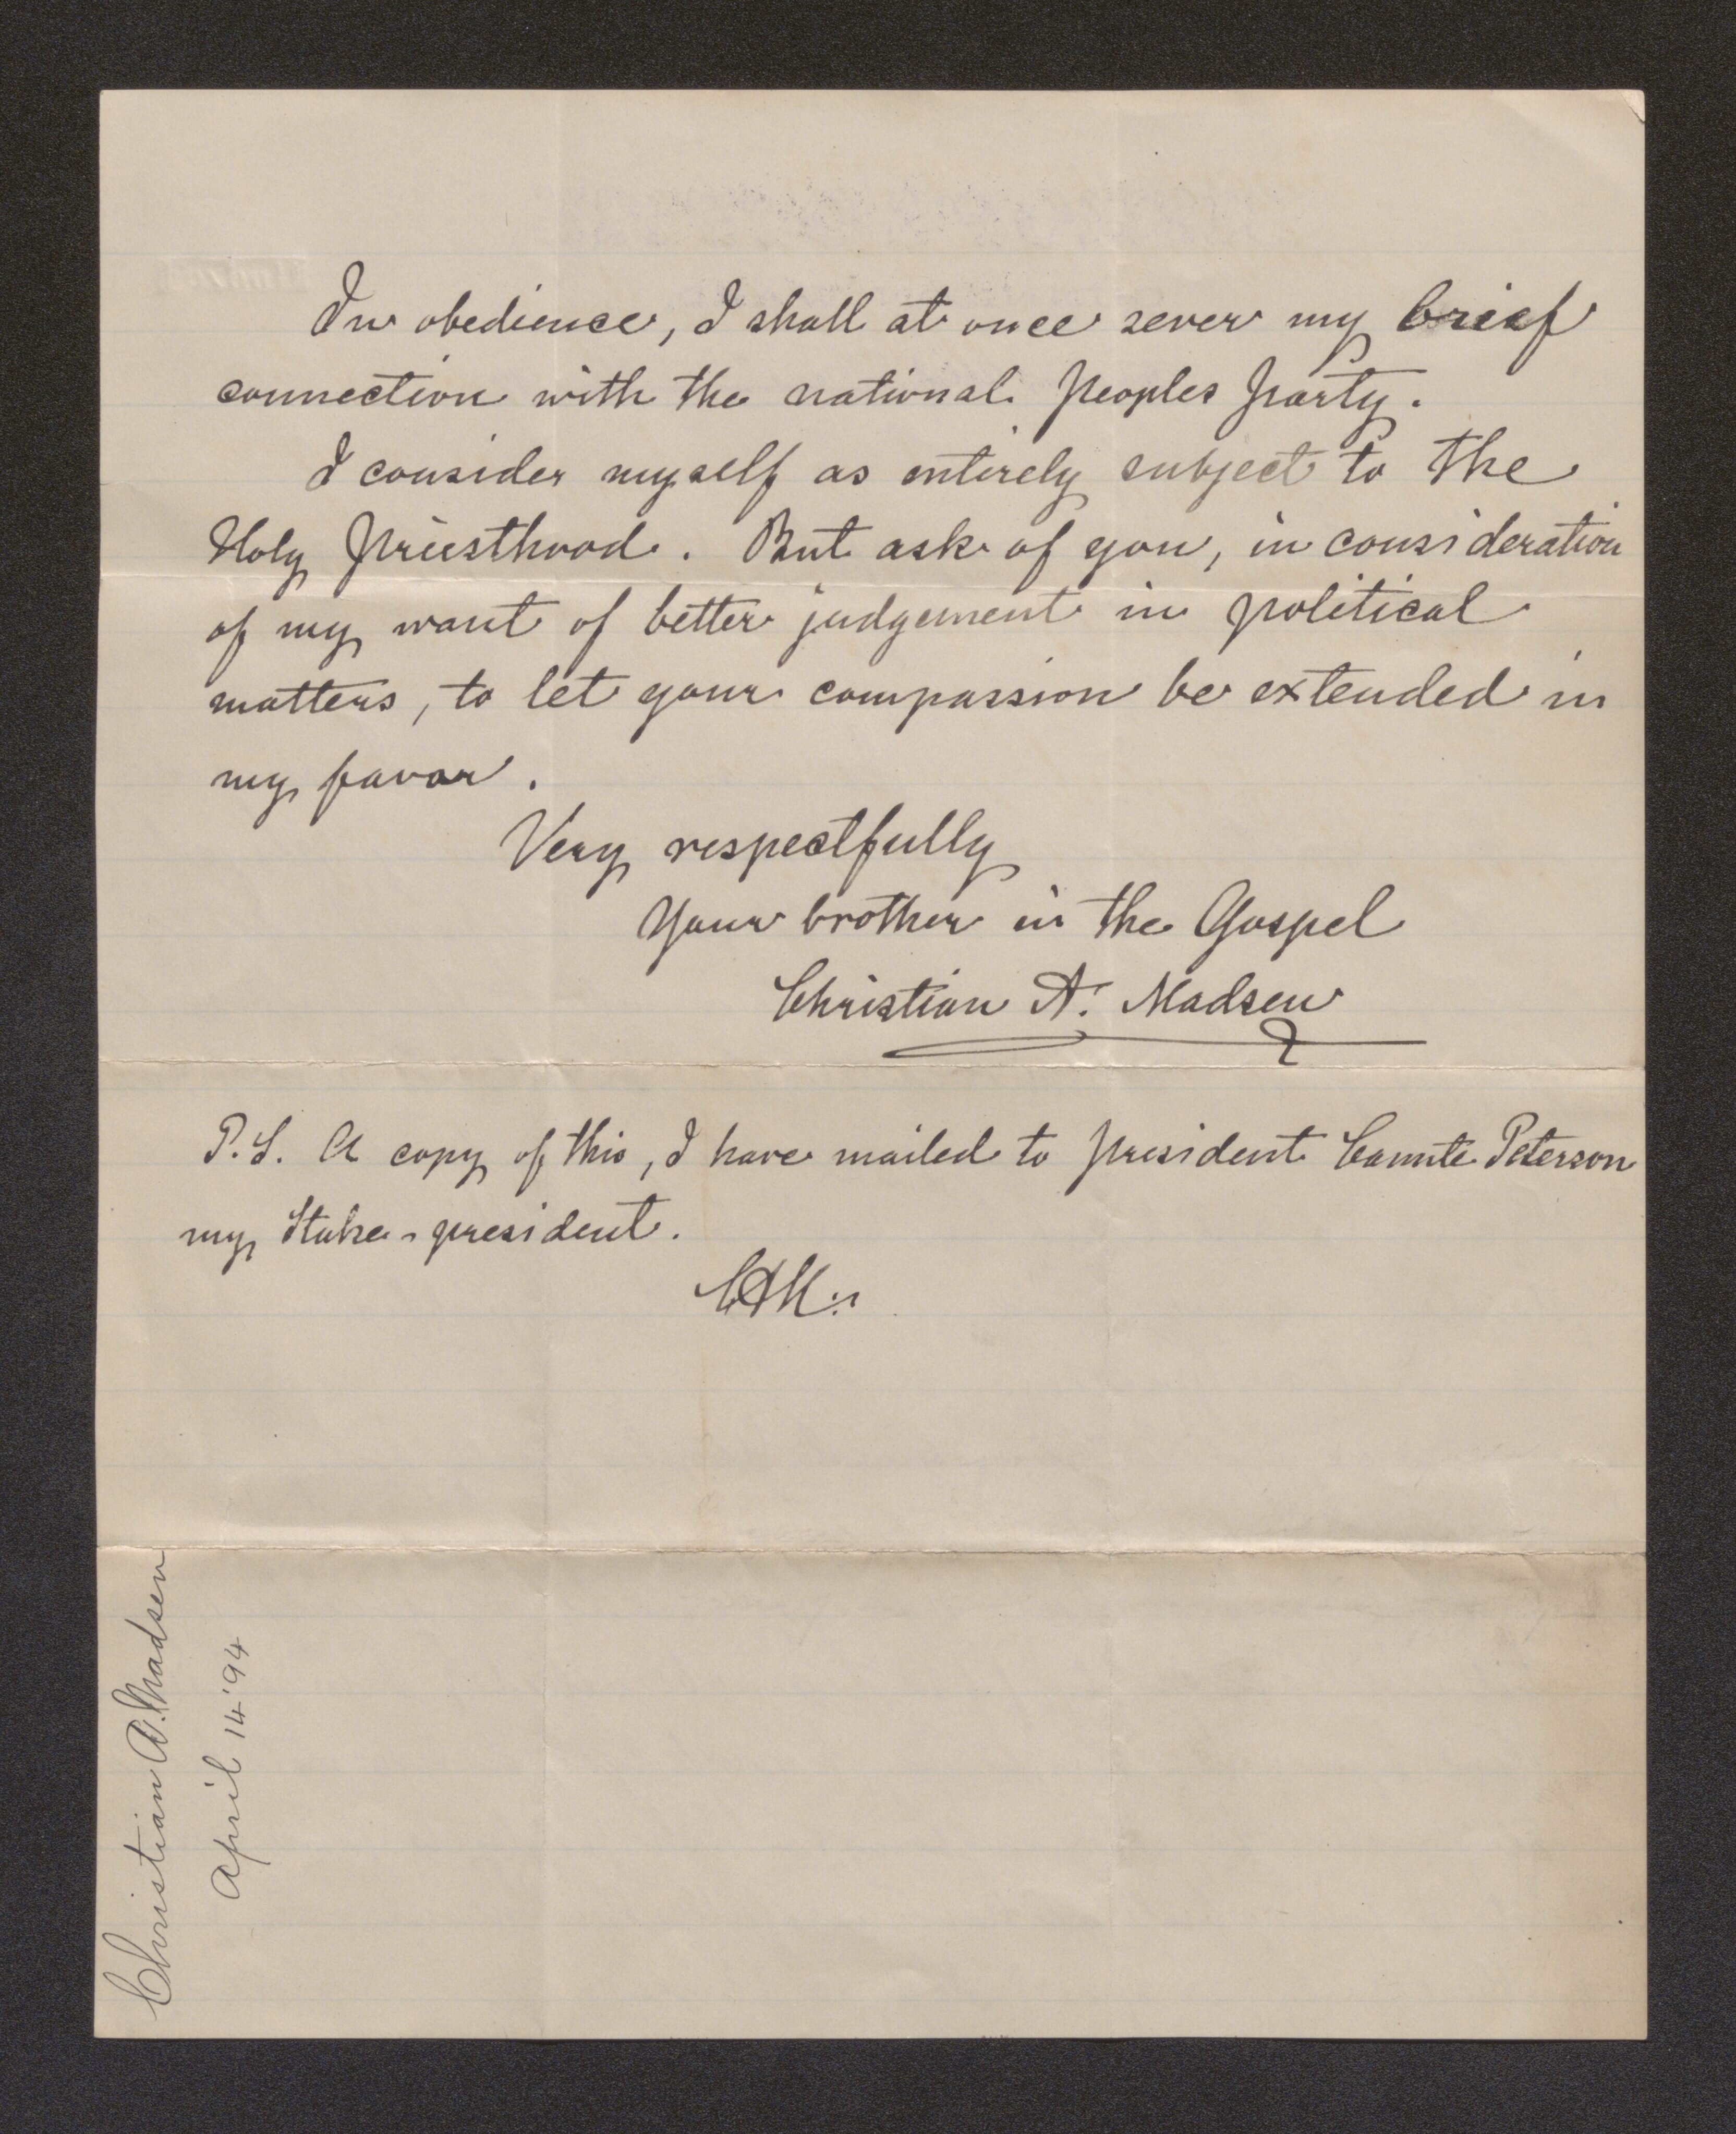 In obedience, I shall at once sever my brief
connection with the national peoples party.
I consider myself as entirely subject to the
Holy Priesthood. But ask of you, in consideration
of my want of better judgement in political
matters, to let your compassion be extended in
my favor.
Very respectfully
Your brother in the Gospel
Christian A. Madsen
P.S. A copy of this, I have mailed to president Canute Peterson
my Stake-president.
CAM.
Christian A. Madsen
April 14 '94